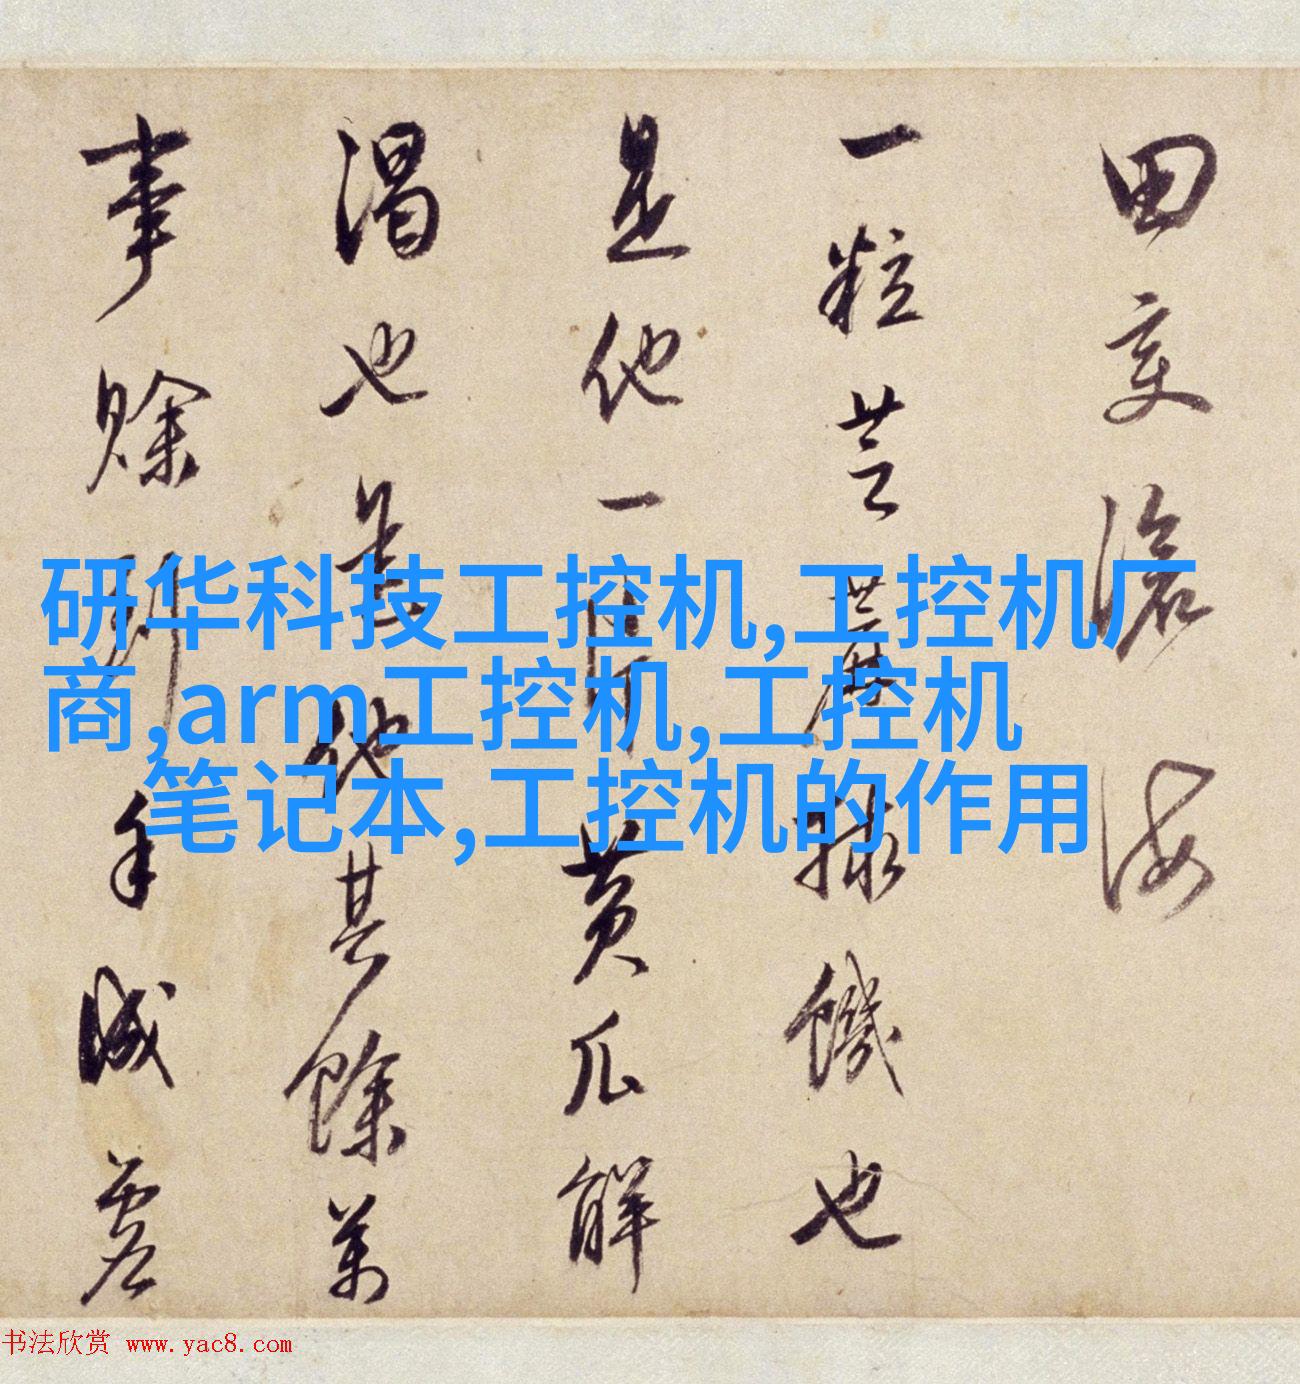 田变滄海
一粒芝蔴捄饑也
是他一片黄瓜解
渴也是他其餘萬
事賒到手
研华科技工控机,工控机厂
商,arm工控机,工控机
笔记本,工控机的作用
书法欣赏 www.yac8.com